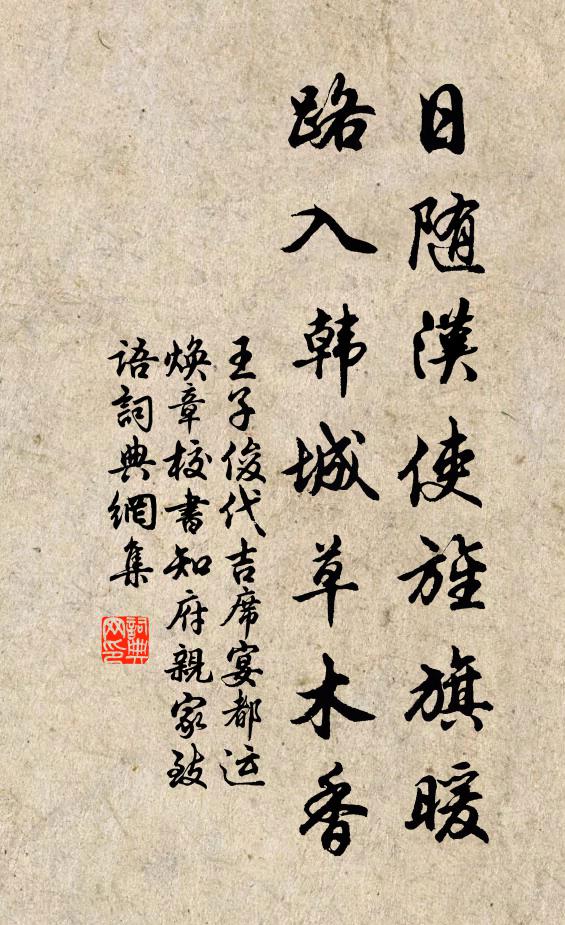 日随漢使旌旗暖
路入韩城草木香
王子俊代吉席宴都运
焕章校書知府親家致
語詞典網集
詞典
网印